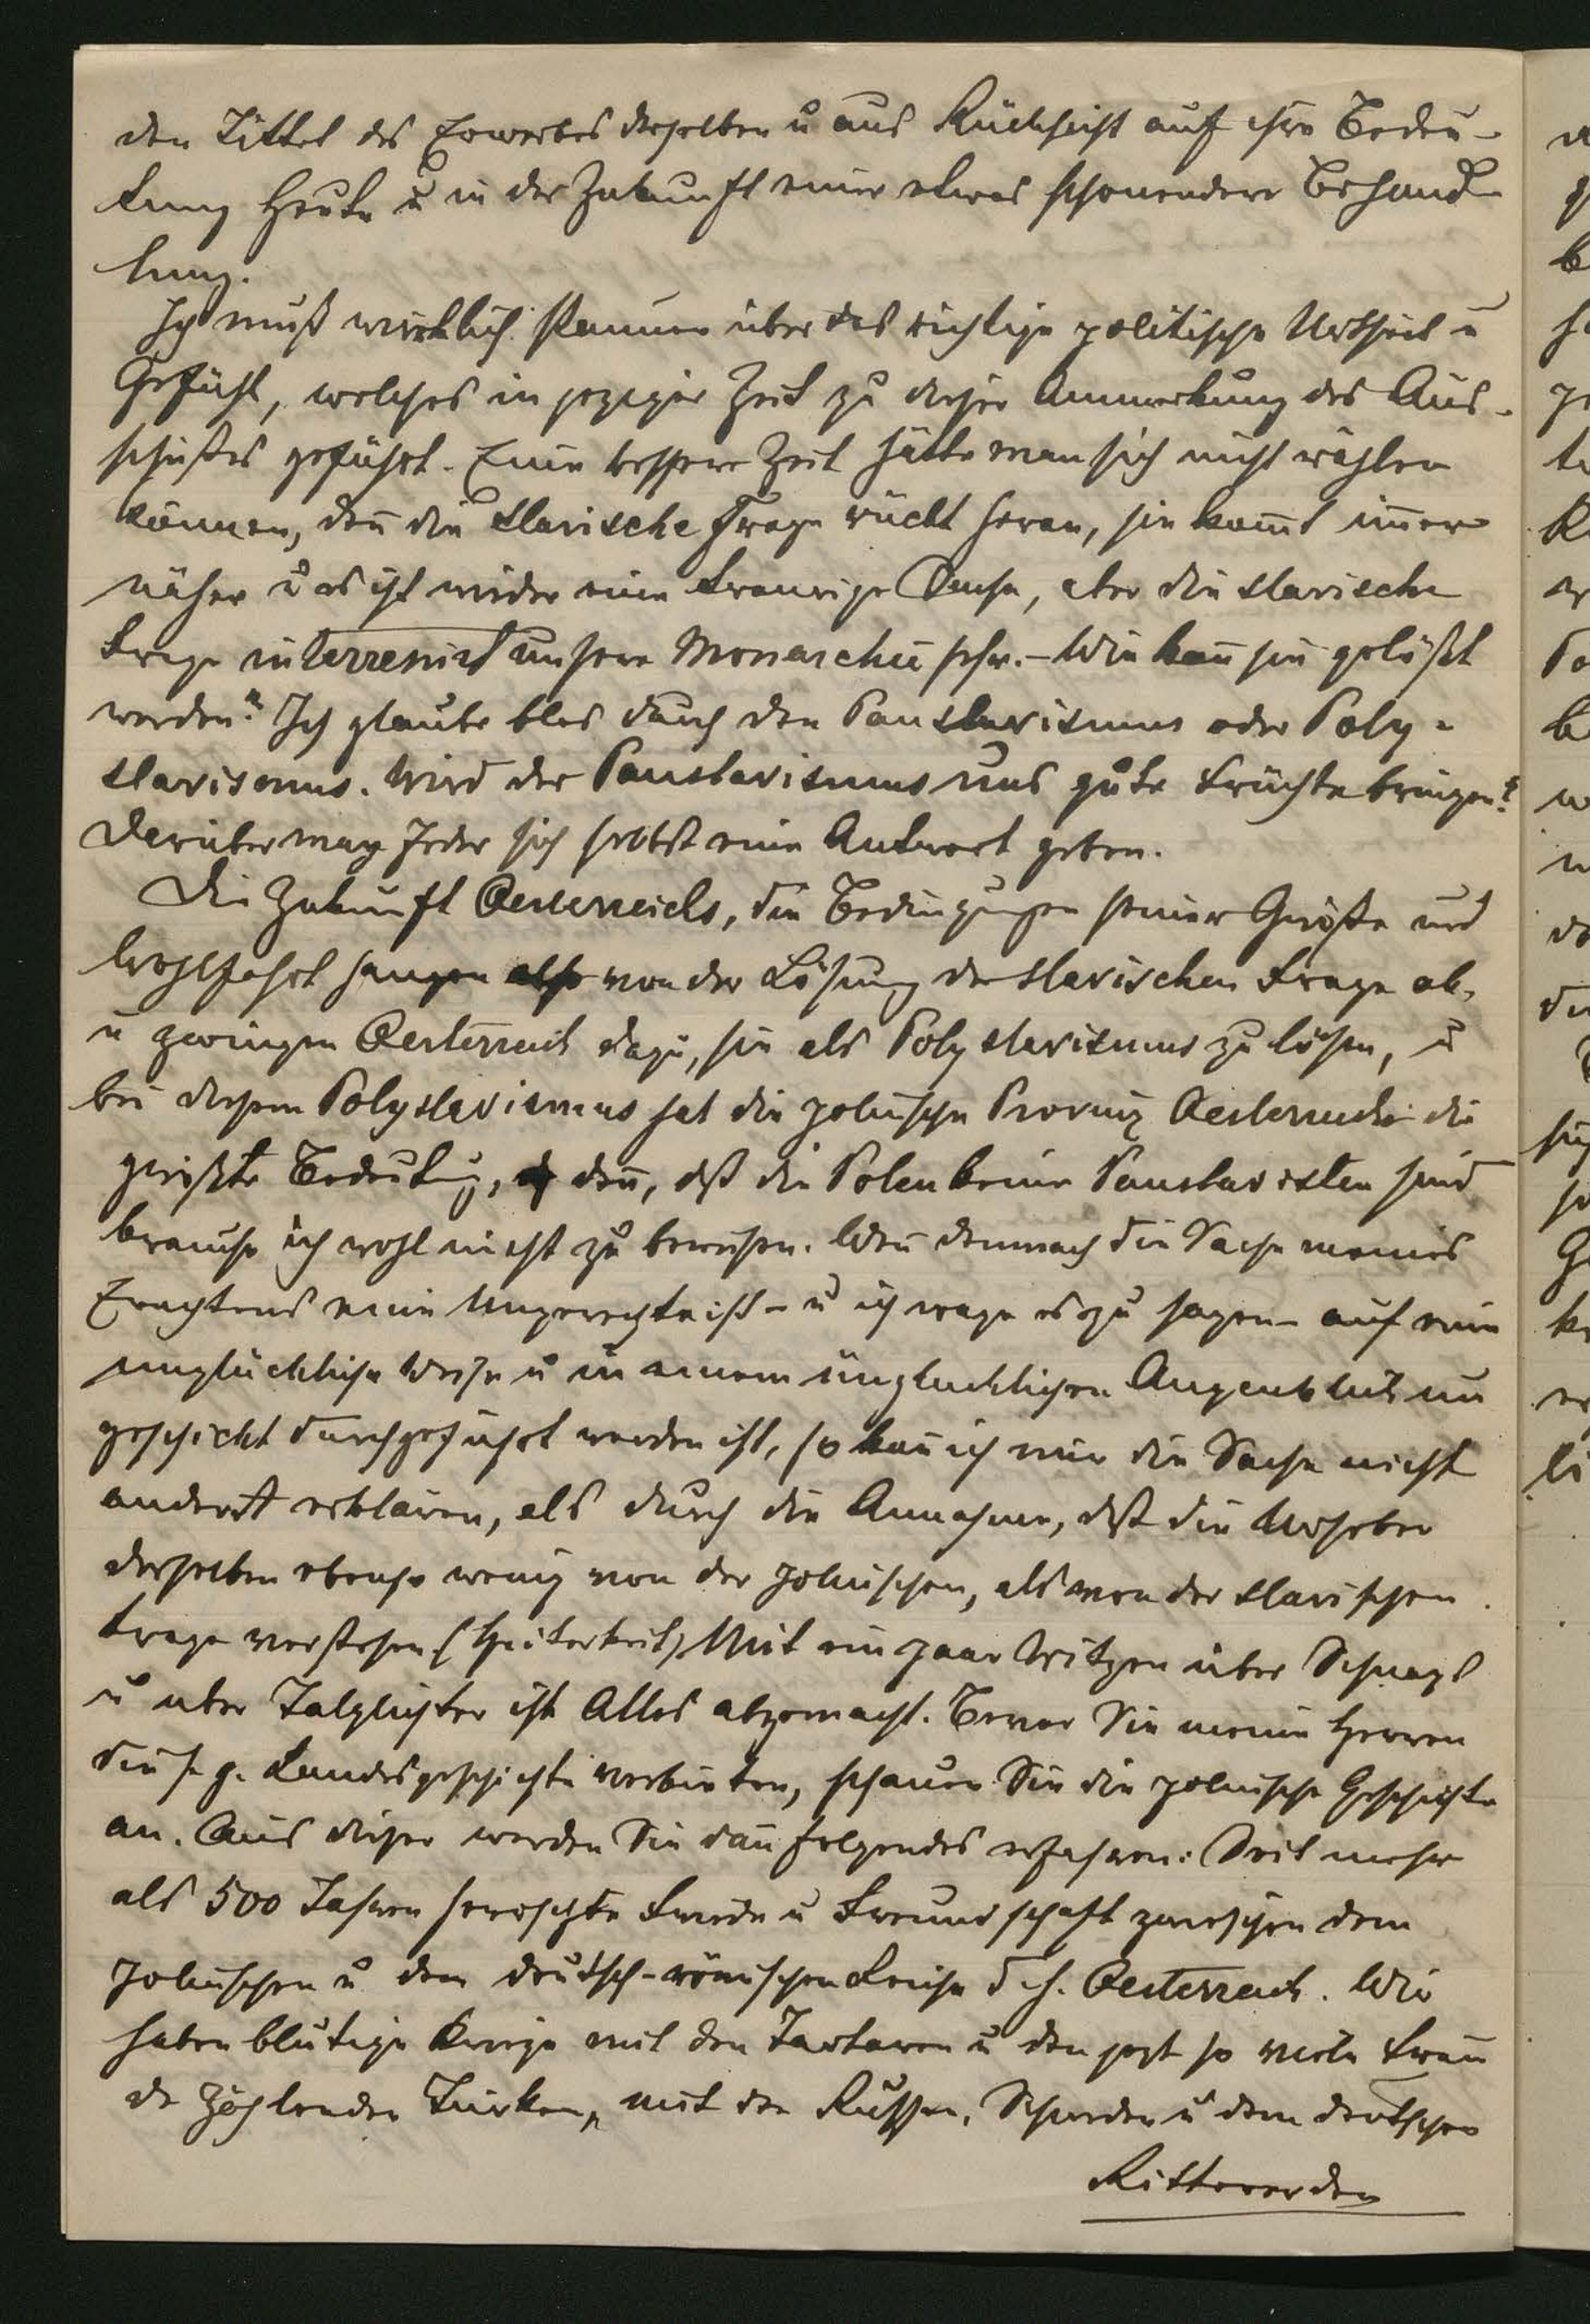 den Tittel des Erwerbes derselben u aus Rücksicht auf ihre Bedeu-
tung heute u in der Zukunft eine etwas schonendere Behand-
lung.
Ich muß wirklich staunen über das richtige politische Urtheil u
Gefühl, welches in jeziger Zeit zu dieser Anmerkung des Aus-
schußes geführt. Eine bessere Zeit hätte man sich nicht wählen
können, den̄ die slavische Frage rückt heran, sie kom̄t im̄er
näher u es ist wieder eine traurige Sache, aber die slavische
Frage interresirt unsere Monarchie sehr. – Wie kan̄ sie gelößt
werden? Ich glaube blos durch den Panslavismus oder Poly-
slavismus. Wird der Panslavismus uns gute Früchte bringen?
Darüber mag Jeder sich selbst eine Antwort geben.
Die Zukunft Oesterreichs, die Bedingungen seiner Größe und
Wohlfahrt hangen also von der Lösung der slavischen Frage ab,
u zwingen Oesterreich dazu, sie als Polyslavismus zu lösen, u
bei diesem Polyslavismus hat die polnische Provinz Oesterreichs die
größte Bedeutung, den̄, daß die Polen keine Panslavisten sind
brauche ich wohl nicht zu beweisen. Wen̄ demnach die Sache meines
Erachtens eine Ungerechtniß – u ich wage es zu sagen – auf eine
unglückliche Weise u in einem unglücklichen Augenblick un
geschickt durchgeführt worden ist, so kan̄ ich mir die Sache nicht
anderst erklären, als durch die Annahme, daß die Urheber
derselben ebenso wenig von der polnischen, als von der slavischen
Frage verstehen (Heiterkeit) Mit ein paar Witzen über Schnaps
u über Talglichter ist Alles abgemacht. Bevor Sie meine Herren
die s. g. Landesgeschichte verbieten, schauen Sie die polnische Geschichte
an. Aus dieser werden Sie dan̄ folgendes erfahren: Seit mehr
als 500 Jahren herrschte Friede u Freundschaft zwischen dem
polnischen u dem deutsch-römischen Reiche d. h. Oesterreich. Wir
haben blutige Kriege mit den Tartaren u den jezt so viele Freun̄
de zählenden Türken, mit den Russen, Schweden u dem deutschen
Ritterorden